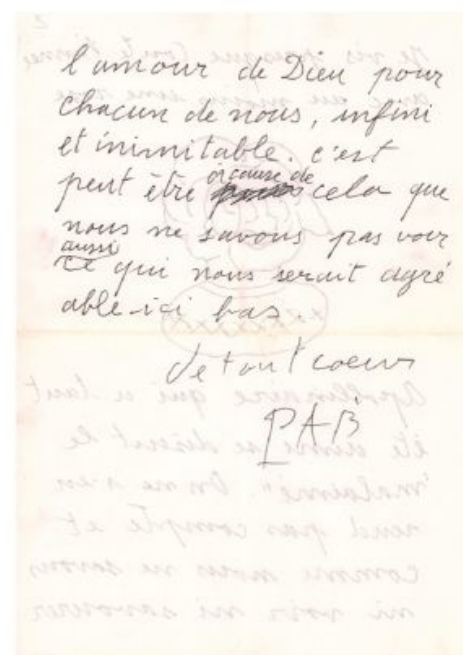 l'amour de Dieu pour
chacun de nous, infini
et inimitable. c'est
peut être à cause de cela que
nous ne savons pas voir
aussi
ce qui nous serait agré
able ici bas.
de tout coeur
PAB